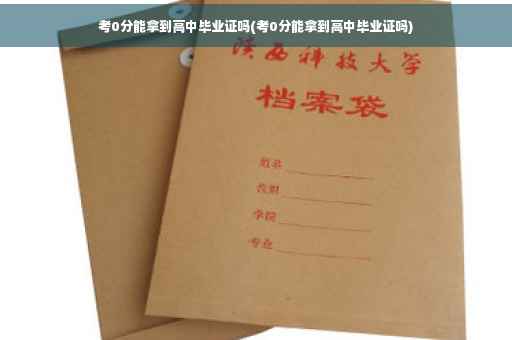 考0分能拿到高中毕业证吗(考0分能拿到高中毕业证吗)
陕西科技大学
档案袋
姓名
学院
专业